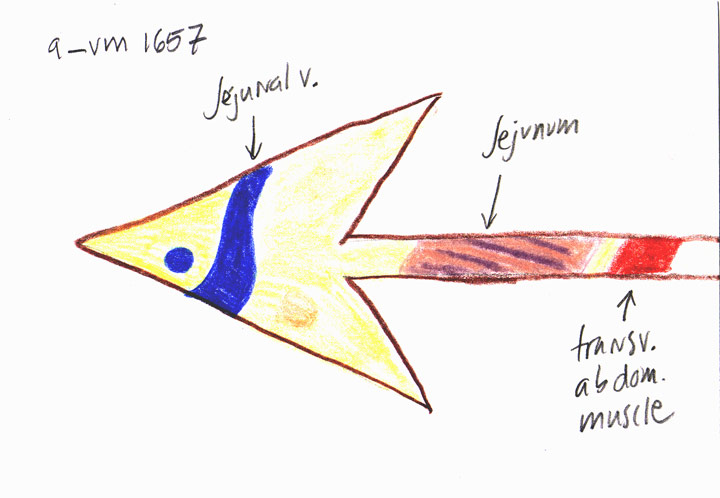 a_vm 1657
Jejunal v.
Jejunum
transv.
abdom.
muscle